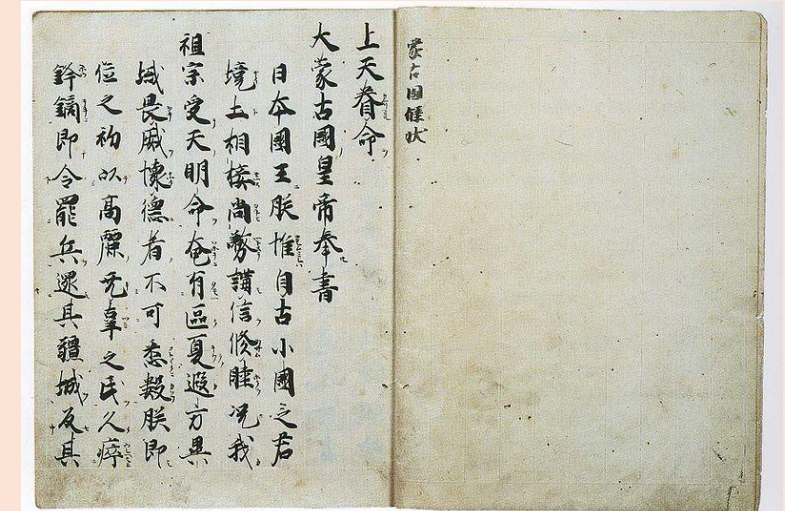 蒙古國牒状
上天眷命
大蒙古國皇帝奉書
日本國王朕惟自古小國之君
境土相接尚務講信修睦况我
祖宗受天明命奄有區夏遐方異
域畏威懐德者不可悉數朕即
位之初以高麗无辜之民久瘁
鋒鏑即令罷兵還其疆域反其